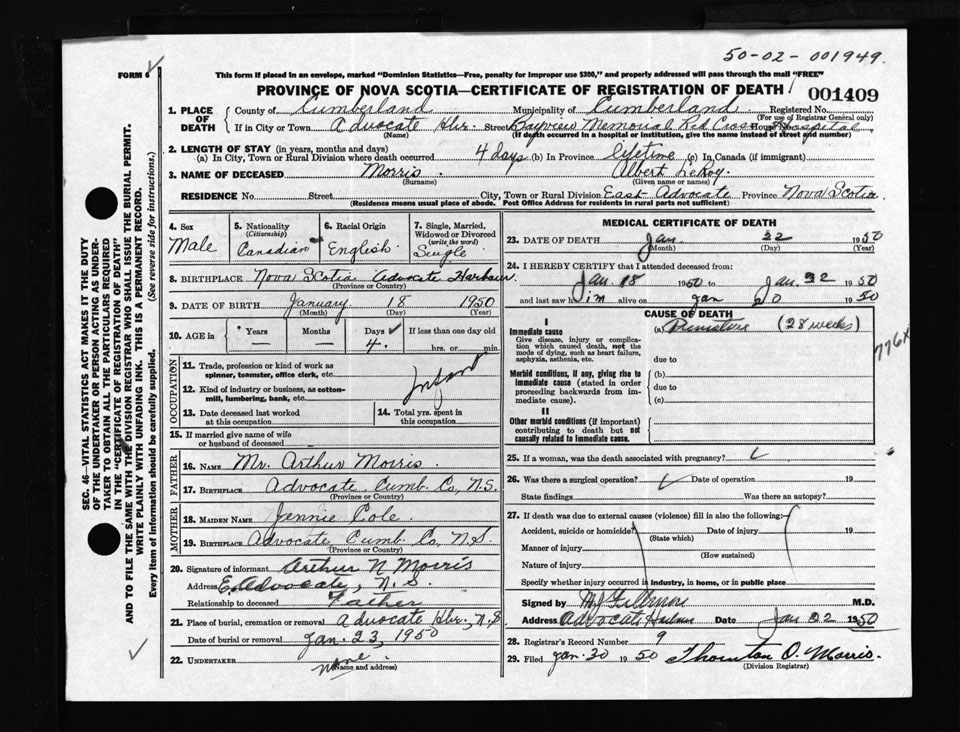 50-02-001949.
FORM 6
This form if placed in an envelope, marked "Dominion Statistics—Free, penalty for improper use $300," and properly addressed will pass through the mail "FREE"
PROVINCE OF NOVA SCOTIA—CERTIFICATE OF REGISTRATION OF DEATH
001409
1. PLACE OF DEATH
County of Cumberland Municipality of Cumberland Registered No.
(For use of Registrar General only)
If in City or Town Advocate Hbr. Street Bayview Memorial Red Cross House No. Hospital
(If death occurred in a hospital or institution, give the name instead of street and number)
2. LENGTH OF STAY (in years, months and days)
(a) In City, Town or Rural Division where death occurred 4 days (b) In Province lifetime (c) In Canada (if immigrant)
3. NAME OF DECEASED Morris. Albert LeRoy.
(Surname) (Given name or names)
RESIDENCE No. Street City, Town or Rural Division East Advocate Province Nova Scotia
(Residence means usual place of abode. Post Office Address for residents in rural parts not sufficient)
4. Sex
Male
5. Nationality
(Citizenship)
Canadian
6. Racial Origin
English.
7. Single, Married, Widowed or Divorced
(write the word)
Single
8. BIRTHPLACE Nova Scotia Advocate Harbour
(Province or Country)
9. DATE OF BIRTH January 18 1950
(Month) (Day) (Year)
10. AGE in
Years
—
Months
—
Days
4.
If less than one day old
hrs. or min.
OCCUPATION
11. Trade, profession or kind of work as spinner, teamster, office clerk, etc.
Infant
12. Kind of industry or business, as cotton-mill, lumbering, bank, etc.
13. Date deceased last worked at this occupation
14. Total yrs. spent in this occupation
15. If married give name of wife or husband of deceased
FATHER
16. NAME Mr. Arthur Morris.
17. BIRTHPLACE Advocate Cumb. Co, N.S.
(Province or Country)
MOTHER
18. MAIDEN NAME Jennie Cole.
19. BIRTHPLACE Advocate Cumb Co, N.S.
(Province or Country)
20. Signature of informant Arthur N Morris
Address E. Advocate, N.S.
Relationship to deceased Father
21. Place of burial, cremation or removal Advocate Hbr., N.S
Date of burial or removal Jan. 23, 1950
22. UNDERTAKER none
(Name and address)
MEDICAL CERTIFICATE OF DEATH
23. DATE OF DEATH Jan. 22 1950
(Month) (Day) (Year)
24. I HEREBY CERTIFY that I attended deceased from:
Jan. 18 1950 to Jan. 22 1950
and last saw him alive on Jan 20 1950
CAUSE OF DEATH
I
Immediate cause
Give disease, injury or complication which caused death, not the mode of dying, such as heart failure, asphyxia, asthenia, etc.
(a) Premature (28 weeks)
776X
due to
Morbid conditions, if any, giving rise to immediate cause (stated in order proceeding backwards from immediate cause).
(b)
due to
(c)
II
Other morbid conditions (if important) contributing to death but not causally related to immediate cause.
25. If a woman, was the death associated with pregnancy?
26. Was there a surgical operation? Date of operation 19
State findings Was there an autopsy?
27. If death was due to external causes (violence) fill in also the following:
Accident, suicide or homicide? Date of injury 19
(State which)
Manner of injury
(How sustained)
Nature of injury
Specify whether injury occurred in industry, in home, or in public place
Signed by M.D.
Address Advocate Harbour Date Jan 22 1950
28. Registrar's Record Number 9
29. Filed Jan. 30 1950 Thornton O. Morris.
(Division Registrar)
SEC. 46—VITAL STATISTICS ACT MAKES IT THE DUTY
OF THE UNDERTAKER OR PERSON ACTING AS UNDER-
TAKER TO OBTAIN ALL THE PARTICULARS REQUIRED
IN THE "CERTIFICATE OF REGISTRATION OF DEATH"
AND TO FILE THE SAME WITH THE DIVISION REGISTRAR WHO SHALL ISSUE THE BURIAL PERMIT.
WRITE PLAINLY WITH UNFADING INK. THIS IS A PERMANENT RECORD.
Every item of information should be carefully supplied. (See reverse side for instructions.)